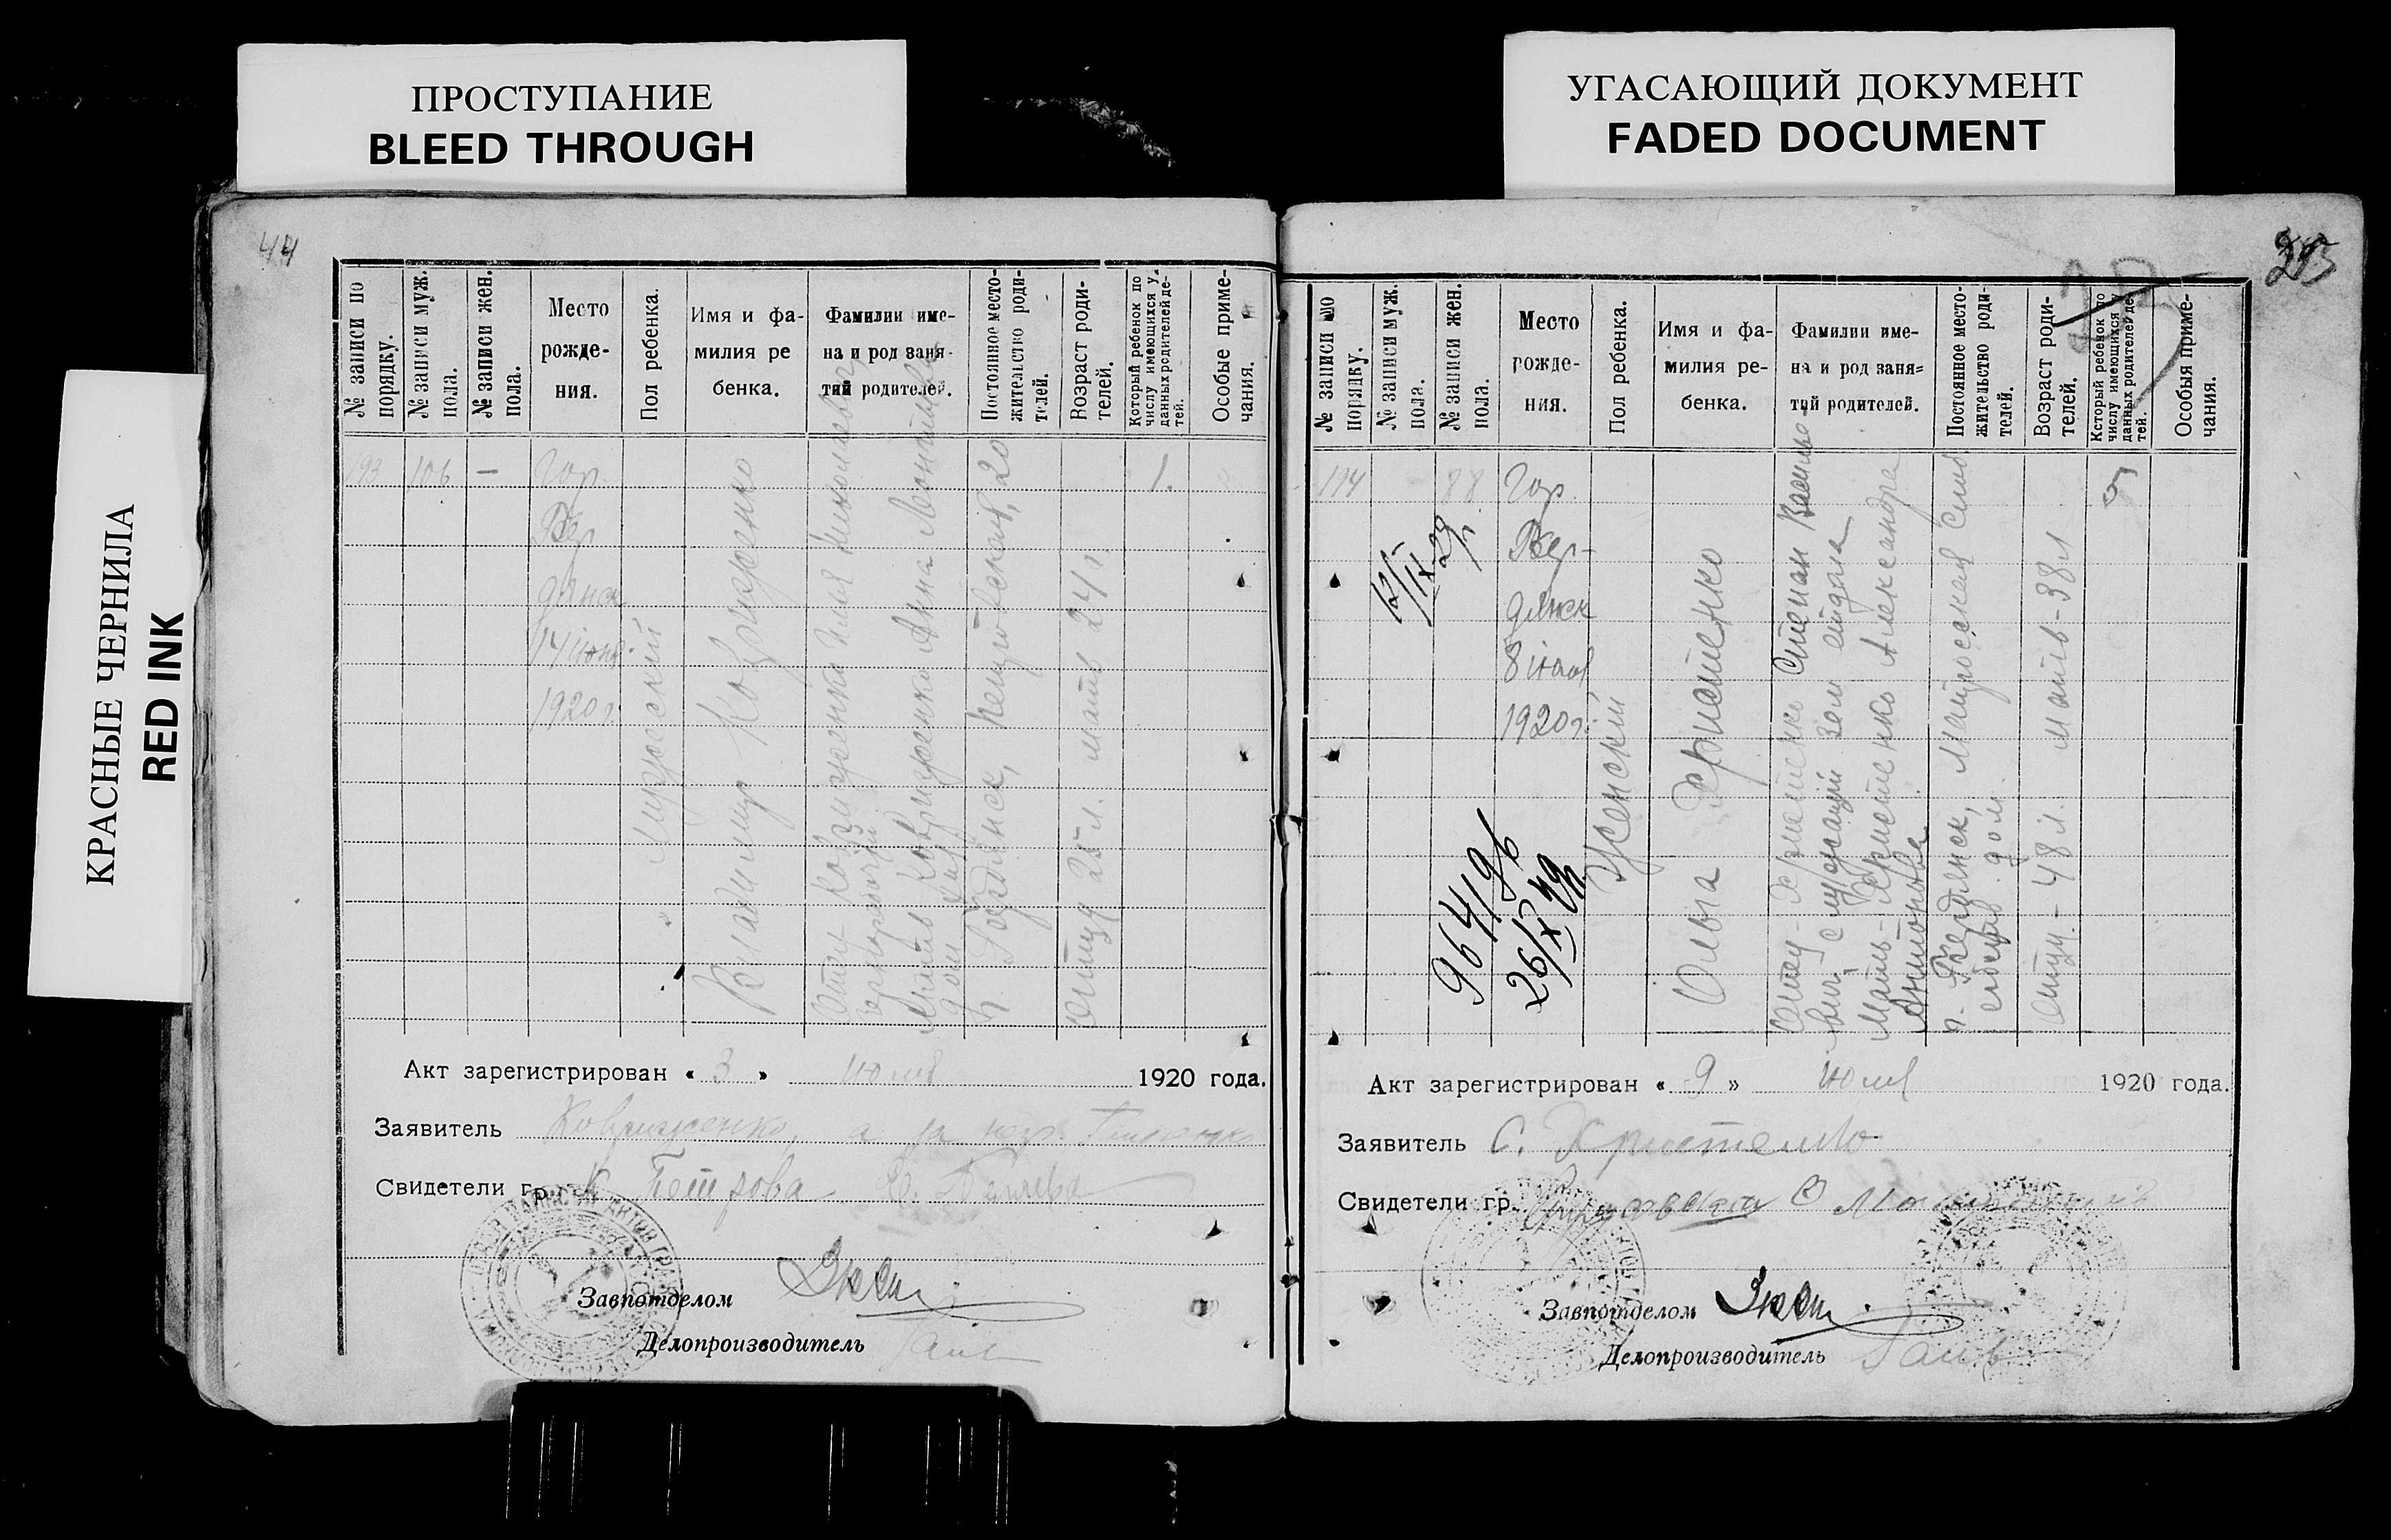 ПРОСТУПАНИЕ
BLEED THROUGH
УГАСАЮЩИЙ ДОКУМЕНТ
FADED DOCUMENT
КРАСНЫЕ ЧЕРНИЛА
RED INK
44
№ записи по
порядку.
№ записи муж.
пола.
№ записи жен.
пола.
Место
рожде-
ния.
Пол ребенка.
Имя и фа-
милия ре
бенка.
Фамилии име-
на и род заня-
тий родителей.
Постоянное место-
жительство роди-
телей.
Возраст роди-
телей.
Который ребенок по
числу имеющихся у
данных родителей де-
тей.
Особые приме-
чания.
193
106
—
Гор.
Бер
дянск
14 июня
1920 г.
Мужеский
Владимир Ковриженко
Отец - Ковриженко Илия Николаевич,
Мать Ковриженко Анна Леонтьевна
г. Бердянск,
20
Отцу 25 л. матв 24 г.
1.
Акт зарегистрирован « 3 » июля 1920 года.
Заявитель Ковриженко, а за негр.
Свидетели гр. К Петрова
Завпотделом
Делопроизводитель
№ записи по
порядку.
№ записи муж.
пола.
№ записи жен.
пола.
Место
рожде-
ния.
Пол ребенка.
Имя и фа-
милия ре-
бенка.
Фамилии име-
на и род заня-
тий родителей.
Постоянное место-
жительство роди-
телей.
Возраст роди-
телей.
Который ребенок по
числу имеющихся у
данных родителей де-
тей.
Особыя приме-
чания.
194
88
Гор.
Бер-
дянск
8 июля
1920 г.
964196
26/X 49г.
Женский
Ольга Христенко
Отец - Христенко Степан Василье
вич, служащий
Мать - Христенко Александра
Антоновна
г. Бердянск, Матросская Слоб
собств. дом.
Отцу - 48 л. матв - 38 л
5
Акт зарегистрирован « 9 » июля 1920 года.
Заявитель С. Христенко
Свидетели гр.
Завпотделом
Делопроизводитель